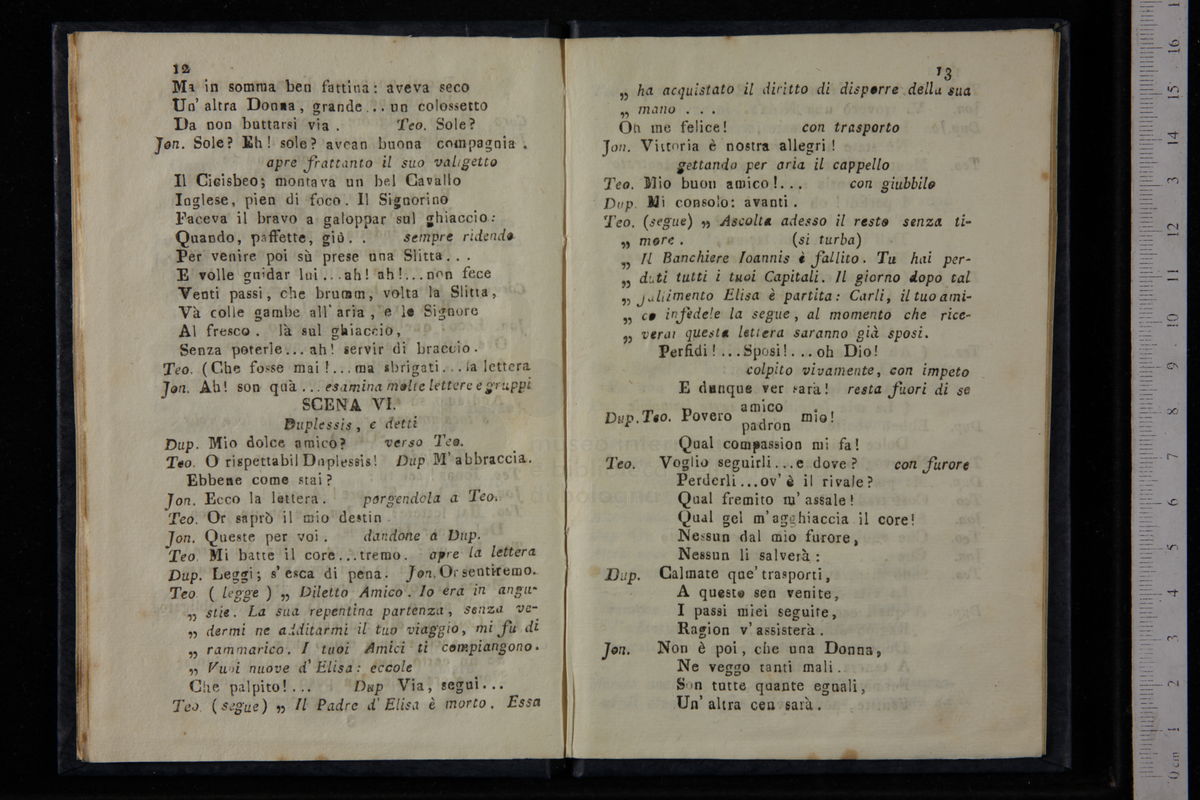 12
Ma in somma ben fattina: aveva seco
Un' altra Donna, grande .. un colossetto
Da non buttarsi via . Teo. Sole?
Jon. Sole? Eh! sole? avean buona compagnia .
apre frattanto il suo valigetto
Il Cicisbeo; montava un bel Cavallo
Inglese, pien di foco. Il Signorino
Faceva il bravo a galoppar sul ghiaccio:
Quando, paffette, giù. . sempre ridendo
Per venire poi sù prese una Slitta...
E volle guidar lui...ah! ah!...non fece
Venti passi, che brumm, volta la Slitta,
Và colle gambe all' aria , e le Signore
Al fresco . là sul ghiaccio,
Senza poterle... ah! servir di braccio.
Teo. (Che fosse mai!...ma sbrigati...la lettera
Jon. Ah! son quà ... esamina molte lettere e gruppi
SCENA VI.
Duplessis, e detti
Dup. Mio dolce amico? verso Teo.
Teo. O rispettabil Duplessis! Dup M' abbraccia.
Ebbene come stai?
Jon. Ecco la lettera. porgendola a Teo.
Teo. Or saprò il mio destin
Jon. Queste per voi . dandone a Dup.
Teo Mi batte il core...tremo. apre la lettera
Dup. Leggi; s' esca di pena. Jon. Or sentiremo.
Teo ( legge ) „ Diletto Amico. Io era in angu-
„ stie. La sua repentina partenza, senza ve-
„ dermi ne additarmi il tuo viaggio, mi fu di
„ rammarico. I tuoi Amici ti compiangono.
„ Vuoi nuove d' Elisa: eccole
Che palpito!... Dup Via, segui...
Teo. (segue) „ Il Padre d' Elisa è morto. Essa
13
„ ha acquistato il diritto di disporre della sua
„ mano . . .
Oh me felice! con trasporto
Jon. Vittoria è nostra allegri!
gettando per aria il cappello
Teo. Mio buon amico!... con giubbilo
Dup. Mi consolo: avanti.
Teo. (segue) „ Ascolta adesso il resto senza ti-
„ more . (si turba)
„ Il Banchiere Ioannis è fallito. Tu hai per-
„ duti tutti i tuoi Capitali. Il giorno dopo tal
„ fallimento Elisa è partita: Carli, il tuo ami-
„ co infedele la segue, al momento che rice-
„ verai questa lettera saranno già sposi.
Perfidi! ...Sposi!...oh Dio!
colpito vivamente, con impeto
E dunque ver sarà! resta fuori di se
Dup. Teo. Povero amico mio!
padron
Qual compassion mi fa!
Teo. Voglio seguirli...e dove? con furore
Perderli...ov' è il rivale?
Qual fremito m' assale!
Qual gel m' agghiaccia il core!
Nessun dal mio furore,
Nessun li salverà:
Dup. Calmate que' trasporti,
A questo sen venite,
I passi miei seguite,
Ragion v' assisterà.
Jon. Non è poi, che una Donna,
Ne veggo tanti mali.
Son tutte quante eguali,
Un' altra cen sarà.